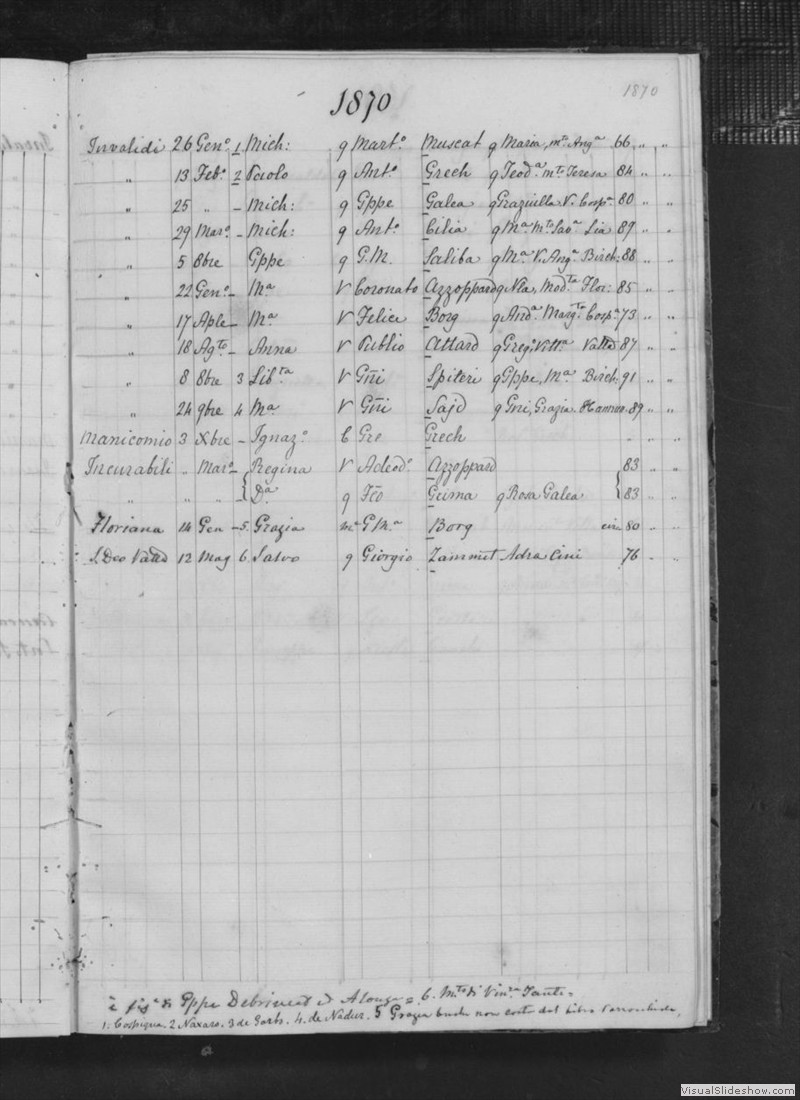 1870
1870
Invalidi 26 Genº 1 Mich: q Martº Muscat q Maria, mta Angª 66 " "
" 13 Febº 2 Paolo q Antº Grech q Teodª mta Teresa 84 " "
" 25 " - Mich: q Gppe Galea q Graziulla V. Cospª 80 " "
" 29 Marº - Mich: q Antº Cilia q Mª mta Savª Lia 89 " "
" 5 8bre Gppe q G.M. Saliba q Mª V. Angª Birch: 88 " "
" 22 Genº - Mª V Coronato Azzoppard q Nla, Modta Flor: 85 " "
" 17 Aple - Mª V Felice Borg q Andª Margta Cospª 73 " "
" 18 Agto - Anna V Publio Attard q Gregº Vittª Vatta 87 " "
" 8 8bre 3 Libta V Gni Spiteri q Gppe, Mª Birch: 91 " "
" 24 9bre 4 Mª V Gni Sajd q Gni, Grazia Hamrun 89 " "
Manicomio 3 Xbre - Ignazº C Gro Grech " " "
Incurabili " Marº - Regina V Adeodº Azzoppard 83 " "
" " " - Dª q Fco Guma q Rosa Galea 83 " "
Floriana 14 Gen - 5. Grazia mª G Mª Borg circa 80 " "
S. Dco Vatta 12 Mag 6 Salvo q Giorgio Zammit Adra Cini 76 - "
è figª di Gppe Debrincat et 6. Mto di Vinzª
1. Cospicua. 2 Naxaro. 3 de 4. de Nadur. 5 Grazia non costa dal libro Parrochiale.